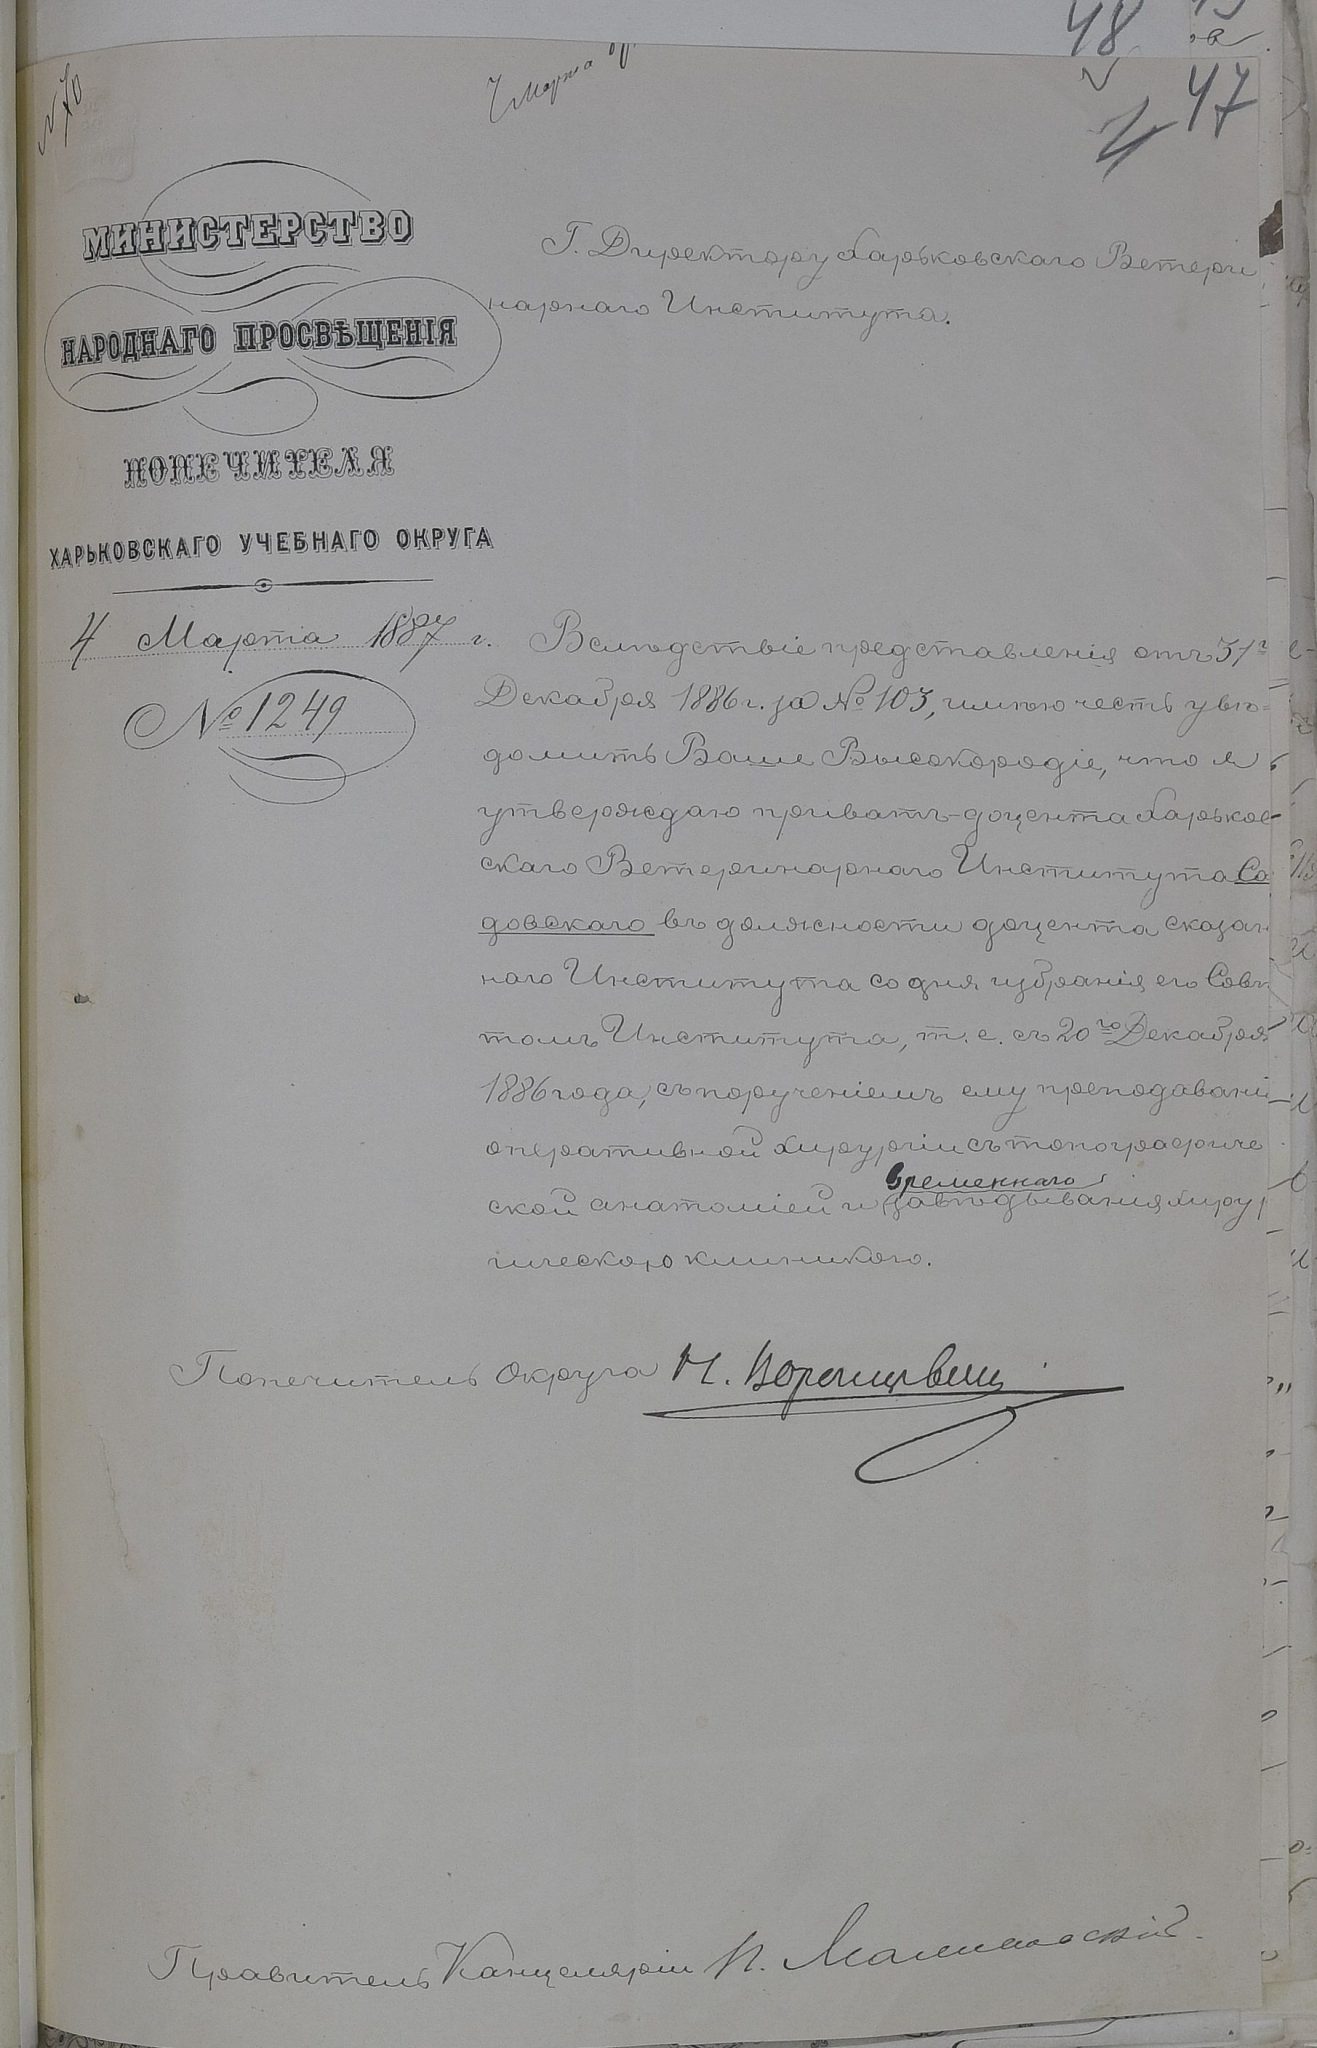 48
47
№ 70
7 Марта
МИНИСТЕРСТВО
НАРОДНАГО ПРОСВѢЩЕНІЯ
ПОПЕЧИТЕЛЯ
ХАРЬКОВСКАГО УЧЕБНАГО ОКРУГА
4 Марта 1887 г.
№ 1249
Г. Директору Харьковскаго Ветери
нарнаго Института.
Вслѣдствіе представленія отъ 31 г
Декабря 1886 г. за № 103, имѣю честь увѣ=
домить Ваше Высокородіе, что я
утверждаю приватъ-доцента Харьков
скаго Ветеринарнаго Института Са
довскаго въ должности доцента сказан
наго Института со дня избранія его Совѣ
томъ Института, т. е. съ 20го Декабря
1886 года, съ порученіемъ ему преподавані
оперативной хирургіи съ топографиче
ской анатоміей и временнаго завѣдыванія хирур
гическою клиникою.
Попечитель Округа Н. Воронцовъ
Правитель Канцеляріи